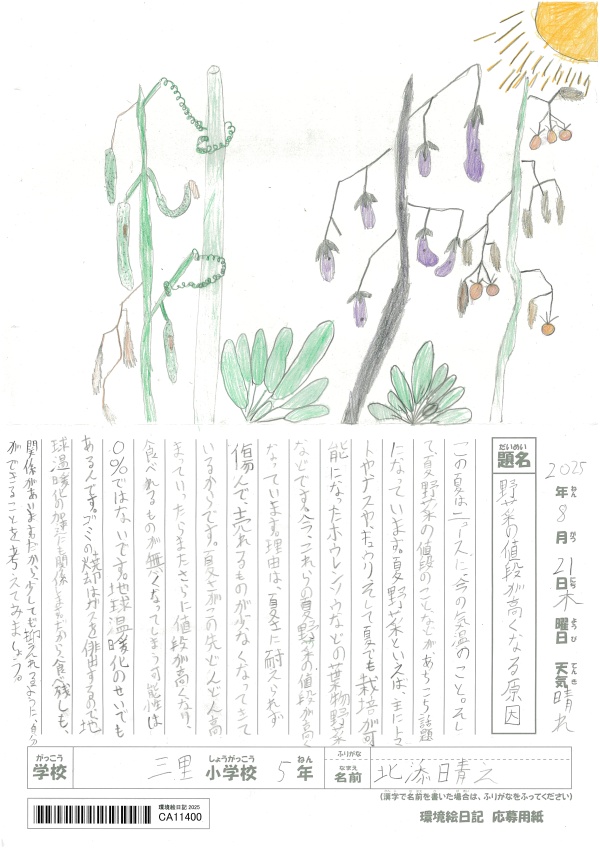 2025年8月21日木曜日 天気晴れ
ねん がつ にち ようび てんき
だいめい
題名
野菜の値段が高くなる原因
この夏はニュースに、今の気温のこと。そし
て夏野菜の値段のことなどがあちこち話題
になっています。夏野菜といえば、主にトマ
トやナスやキュウリ、そして夏でも栽培が可
能になったホウレンソウなどの葉物野菜
などです。今、これらの夏野菜の値段が高く
なっています。理由は、夏空に耐えられず
傷んで、売れるものが少なくなってきて
いるからです。夏空がこの先どんどん高
まっていったらまたさらに値段が高くなり、
食べれるものが無くなってしまう可能性は
0%ではないです。地球温暖化のせいでも
あるんです。ゴミの焼却はガスを排出するので地
球温暖化の加速にも関係します。だから食べ残しも、
関係があいます。だから、少しでも抑えれるように、自分
ができることを考えてみましょう。
がっこう
学校
三里
しょうがっこう
小学校
5
ねん
年
ふりがな
なまえ
名前
北添晴之
(漢字で名前を書いた場合は、ふりがなをふってください)
環境絵日記2025
CA11400
環境絵日記 応募用紙